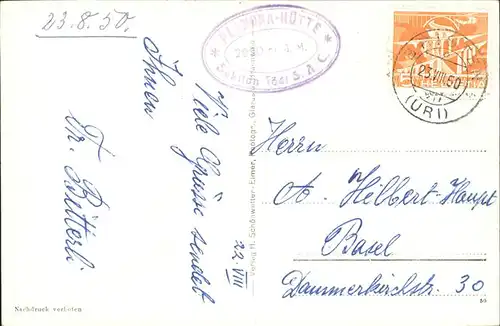 23.8.50.
PLANURA-HÜTTE
Sektion Tödi S.A.C.
Viele Grüsse sendet
Ihnen
Fr. Bütterli
22.VIII
Herrn
A. Hilbert-Haupt
Basel
Dammerkirchstr. 30
23.VIII.50
(URI)
Verlag H. Schönwetter-Elmer, Photogr., Glarus
Nachdruck verboten